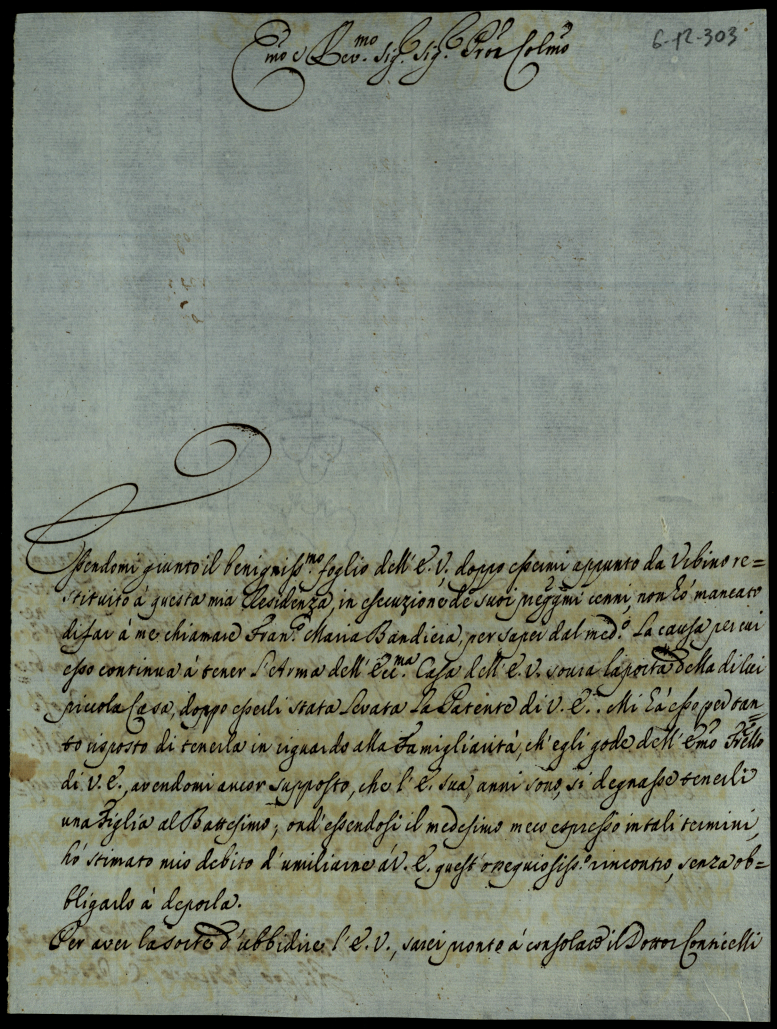 6-12-303
Emo e Rev.mo Sig.r Sig.r Pron Colmo
Essendomi giunto il benigniss.mo foglio dell' E. V. doppo essermi appunto da Urbino re=
stituito á questa mia Residenza, in esecuzione de suoi preggmi cenni, non hó mancato
di far á me chiamare Fran.o Maria Bandiera, per saper dal med.o La causa per cui
esso continua á tener L'Arma dell' Ecc.ma Casa dell' E. V. sovra la porta della di lui
piccola Casa, doppo esserli stata levata La Patente di V. E.. Mi há esso per tan=
to risposto di tenerla in riguardo alla Famigliarità, ch' egli gode dell' Emo Frello
di V. E., avendomi ancor supposto, che l' E. sua, anni sono, si degnasse tenerli
una Figlia al Battesimo; ond' essendosi il medesimo meco espresso in tali termini,
hó stimato mio debito d' umiliarne á V. E. quest' ossequiosiss.o rincontro, senza ob=
bligarlo á deporla.
Per aver la sorte d' ubbidire l' E. V., sarei pronto á consolare il Dottor Conticelli